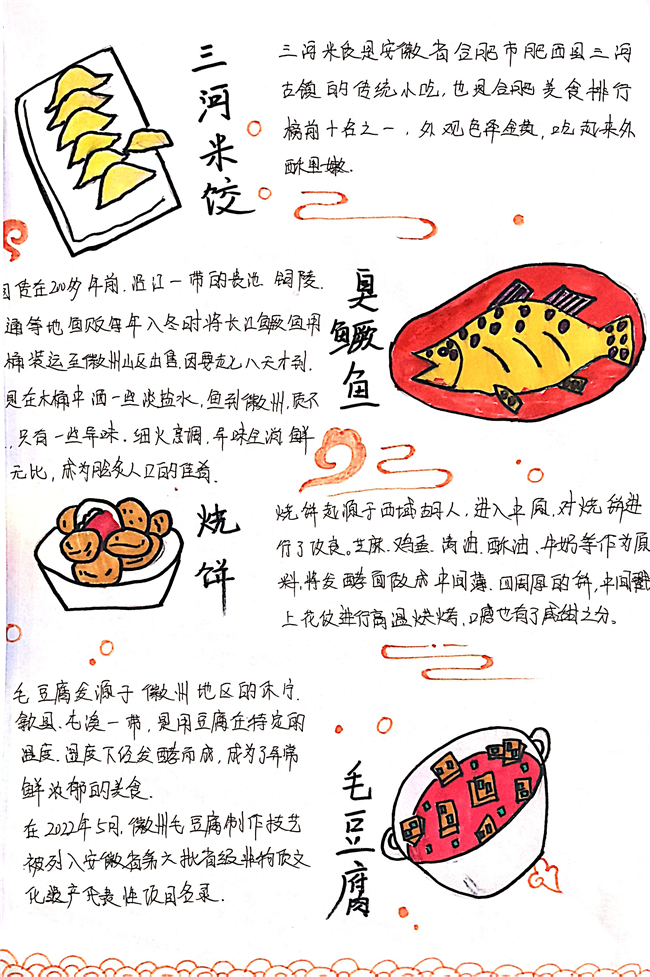 三河米饺
三河米食是安徽省合肥市肥西县三河
古镇的传统小吃,也是合肥美食排行
榜前十名之一,外观色泽金黄,吃起来外
酥里嫩.
臭鳜鱼
在200多年前.沿江一带的长池 铜陵.
通等地鱼贩每年入冬时将长江鳜鱼用
桶装运至徽州山区出售,因要走七八天才到.
在木桶中洒一些淡盐水,鱼到徽州,质不
,只有一些异味.细火烹调,异味全消 鲜
无比,成为脍炙人口的佳肴.
烧饼
烧饼起源于西域胡人,进入中原,对烧饼进
行了改良。芝麻.鸡蛋.黄油.酥油.牛奶等作为原
料,将发酵面做成中间薄.四周厚的饼,中间戳
上花纹进行高温烘烤,口感也有了咸甜之分。
毛豆腐
毛豆腐发源于徽州地区的休宁.
歙县.屯溪一带,是用豆腐在特定的
温度.湿度下经发酵而成,成为了异常
鲜浓郁的美食.
在2022年5月,徽州毛豆腐制作技艺
被列入安徽省第六批省级非物质文
化遗产代表性项目名录.